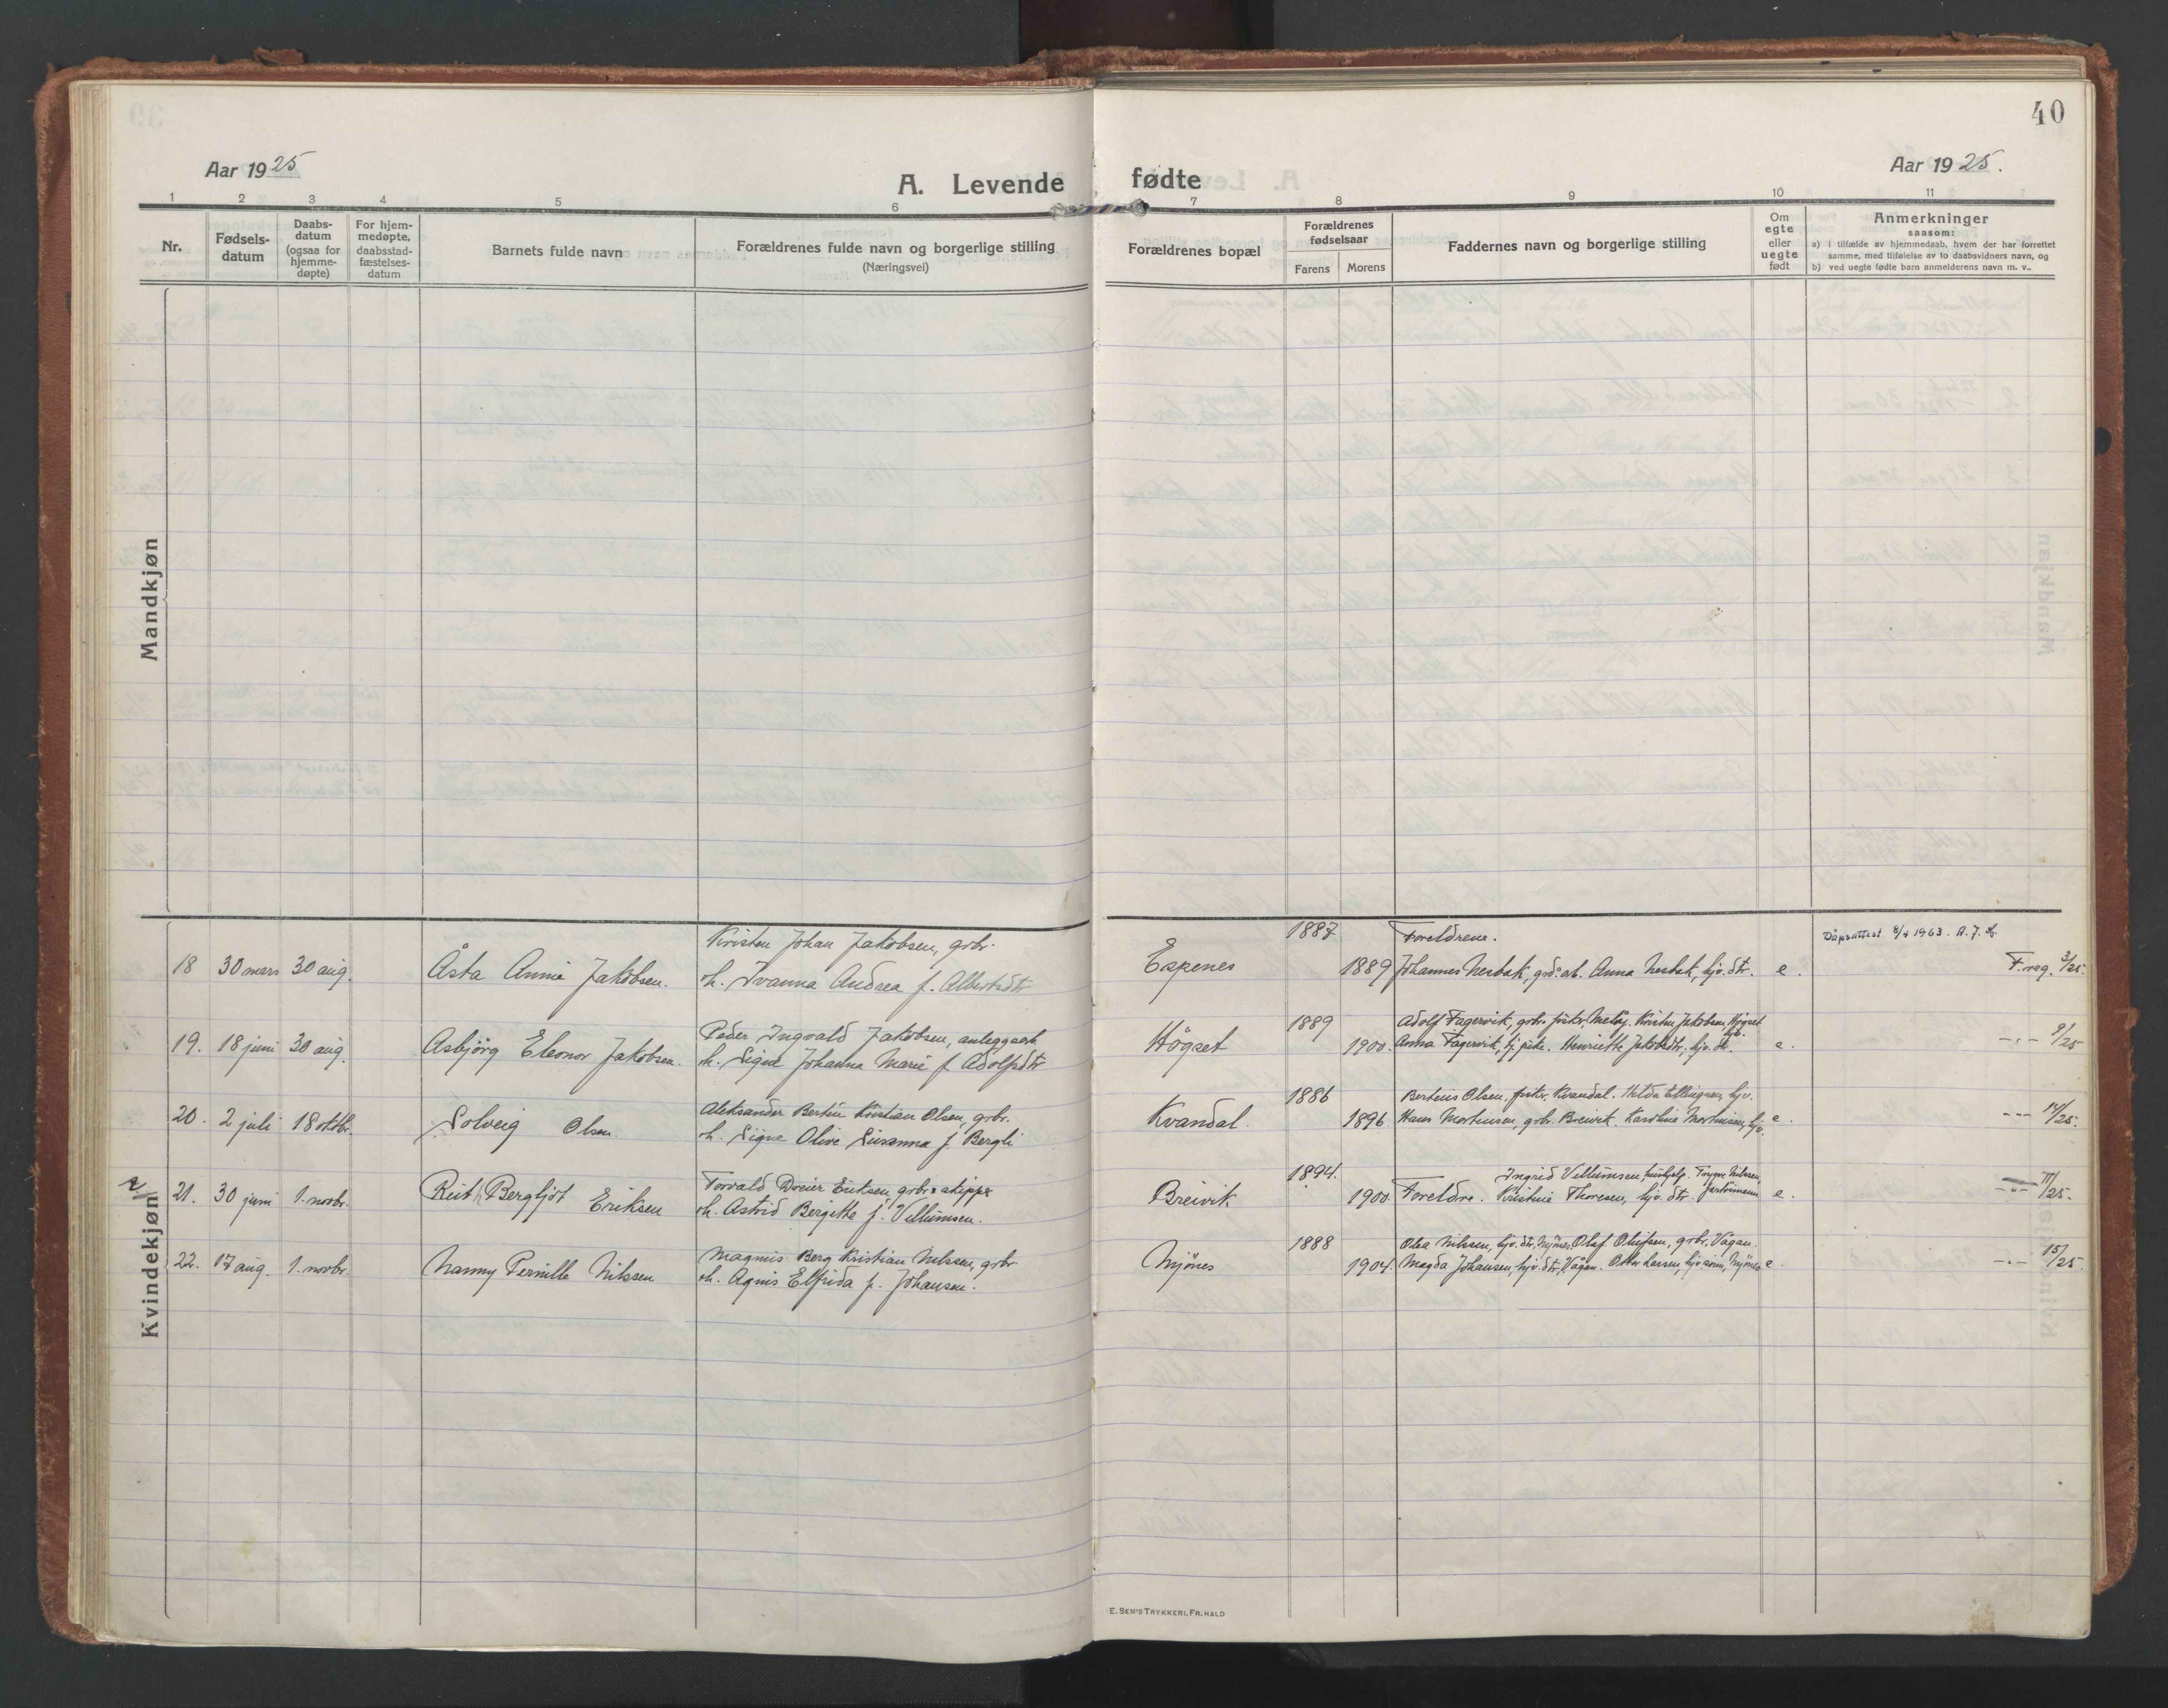 40
Aar 1925
Aar 1925.
A. Levende fødte
1 2 3 4 5 6 7 8 9 10 11
Nr.
Fødsels-
datum
Daabs-
datum
(ogsaa for
hjemme-
døpte)
For hjem-
medøpte,
daabsstad-
fæstelses-
datum
Barnets fulde navn
Forældrenes fulde navn og borgerlige stilling
(Næringsvei)
Forældrenes bopæl
Forældrenes
fødselsaar
Farens Morens
Faddernes navn og borgerlige stilling
Om
egte
eller
uegte
født
Anmerkninger
saasom:
a) i tilfælde av hjemmedaab, hvem der har forrettet
samme, med tilføielse av to daabsvidners navn, og
b) ved uegte fødte barn anmelderens navn m. v..
Mandkjøn
Kvindekjøn
Kristen Johan Jakobsen, grbr. 1887 Foreldrene. Dåpsattest 8/4 1963. A. J.
18 30 mars 30 aug. Åsta Annie Jakobsen. h. Ivanna Andrea f. Albertsdtr Espenes 1889 Johannes Nesbak, grd. arb. Anna Nesbak, hjv. dtr. e. F.reg. 3/25.
Peder Ingvald Jakobsen, anleggsarb. 1889 Adolf Fagervik, grbr. fisker, Meløy. Kristen Jakobsen, Høgset
19. 18 juni 30 aug. Asbjörg Eleonor Jakobsen. h. Signe Johanna Marie f. Adolfsdtr Högset 1900. Anna Fagervik, tj. pike. Henriette Jakobsdtr, hjv. dtr. e. -"- 9/25
Aleksander Bertin Kristian Olsen, grbr. 1886 Berteus Olsen, fisker, Kvandal. Hilda Ellingsen, hjv.
20. 2 juli 18 oktbr. Solveig Olsen h. Signe Olive Susanna f. Bergli Kvandal. 1896 Hans Mortinsen, grbr. Breivik. Karoline Mortinsen, hjv. e. -"- 14/25.
Torvald Dreier Eriksen, grbr. & skipper 1894. Ingrid Villumsen, hushjelp. Trygve Nilssen,
21. 30 juni 1. novbr. Ruth Bergljot Eriksen h. Astrid Bergitte f. Villumsen. Breivik 1900 Foreldre. Kristine Thoresen, hjv. dtr. e. -"- 11/25.
Magnus Berg Kristian Nilssen, grbr 1888 Olea Nilssen, hjv. dtr, Mjönes, Olaf Olufsen, grbr. Vågan.
22. 17 aug. 1. novbr. Nanny Pernille Nilssen h. Agnis Elfrida f. Johansen. Mjönes 1904. Magda Johansen, hjv. dtr, Vågan. Otter Larsen, hjv. sönn, Mjönes e. -"- 15/25.
E. SEM'S TRYKKERI, FR. HALD